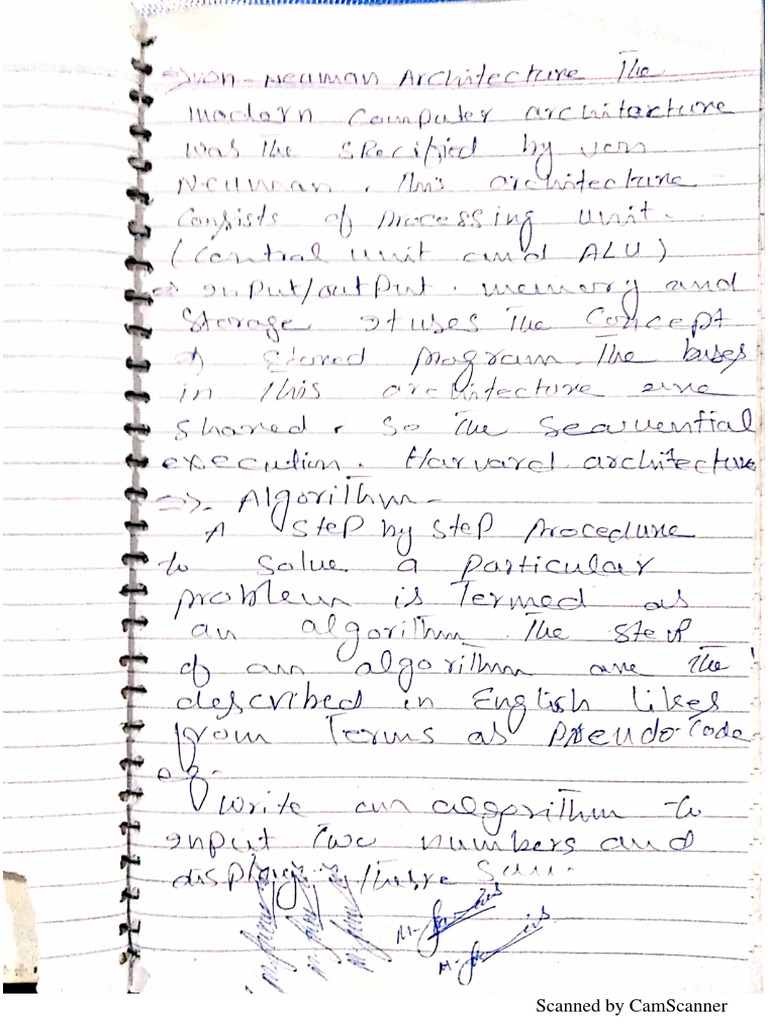 => von-Neuman Architecture The
modern Computer architecture
was the specified by von
Neuman. This architecture
Consists of Processing unit.
(Central unit and ALU)
=> Input/output. memory and
Storage It uses The Concept
of Stored program. The buses
in This architecture are
shared. So The Sequential
execution. Harvard architecture
=>. Algorithm-
A Step by Step Procedure
to Solve a particular
problem is Termed as
an algorithm. The Step
of an algorithm are the
described in English likes
from Terms as Pseudo-Code
e.g.
Write an algorithm to
Input Two numbers and
display Sum.
Scanned by CamScanner